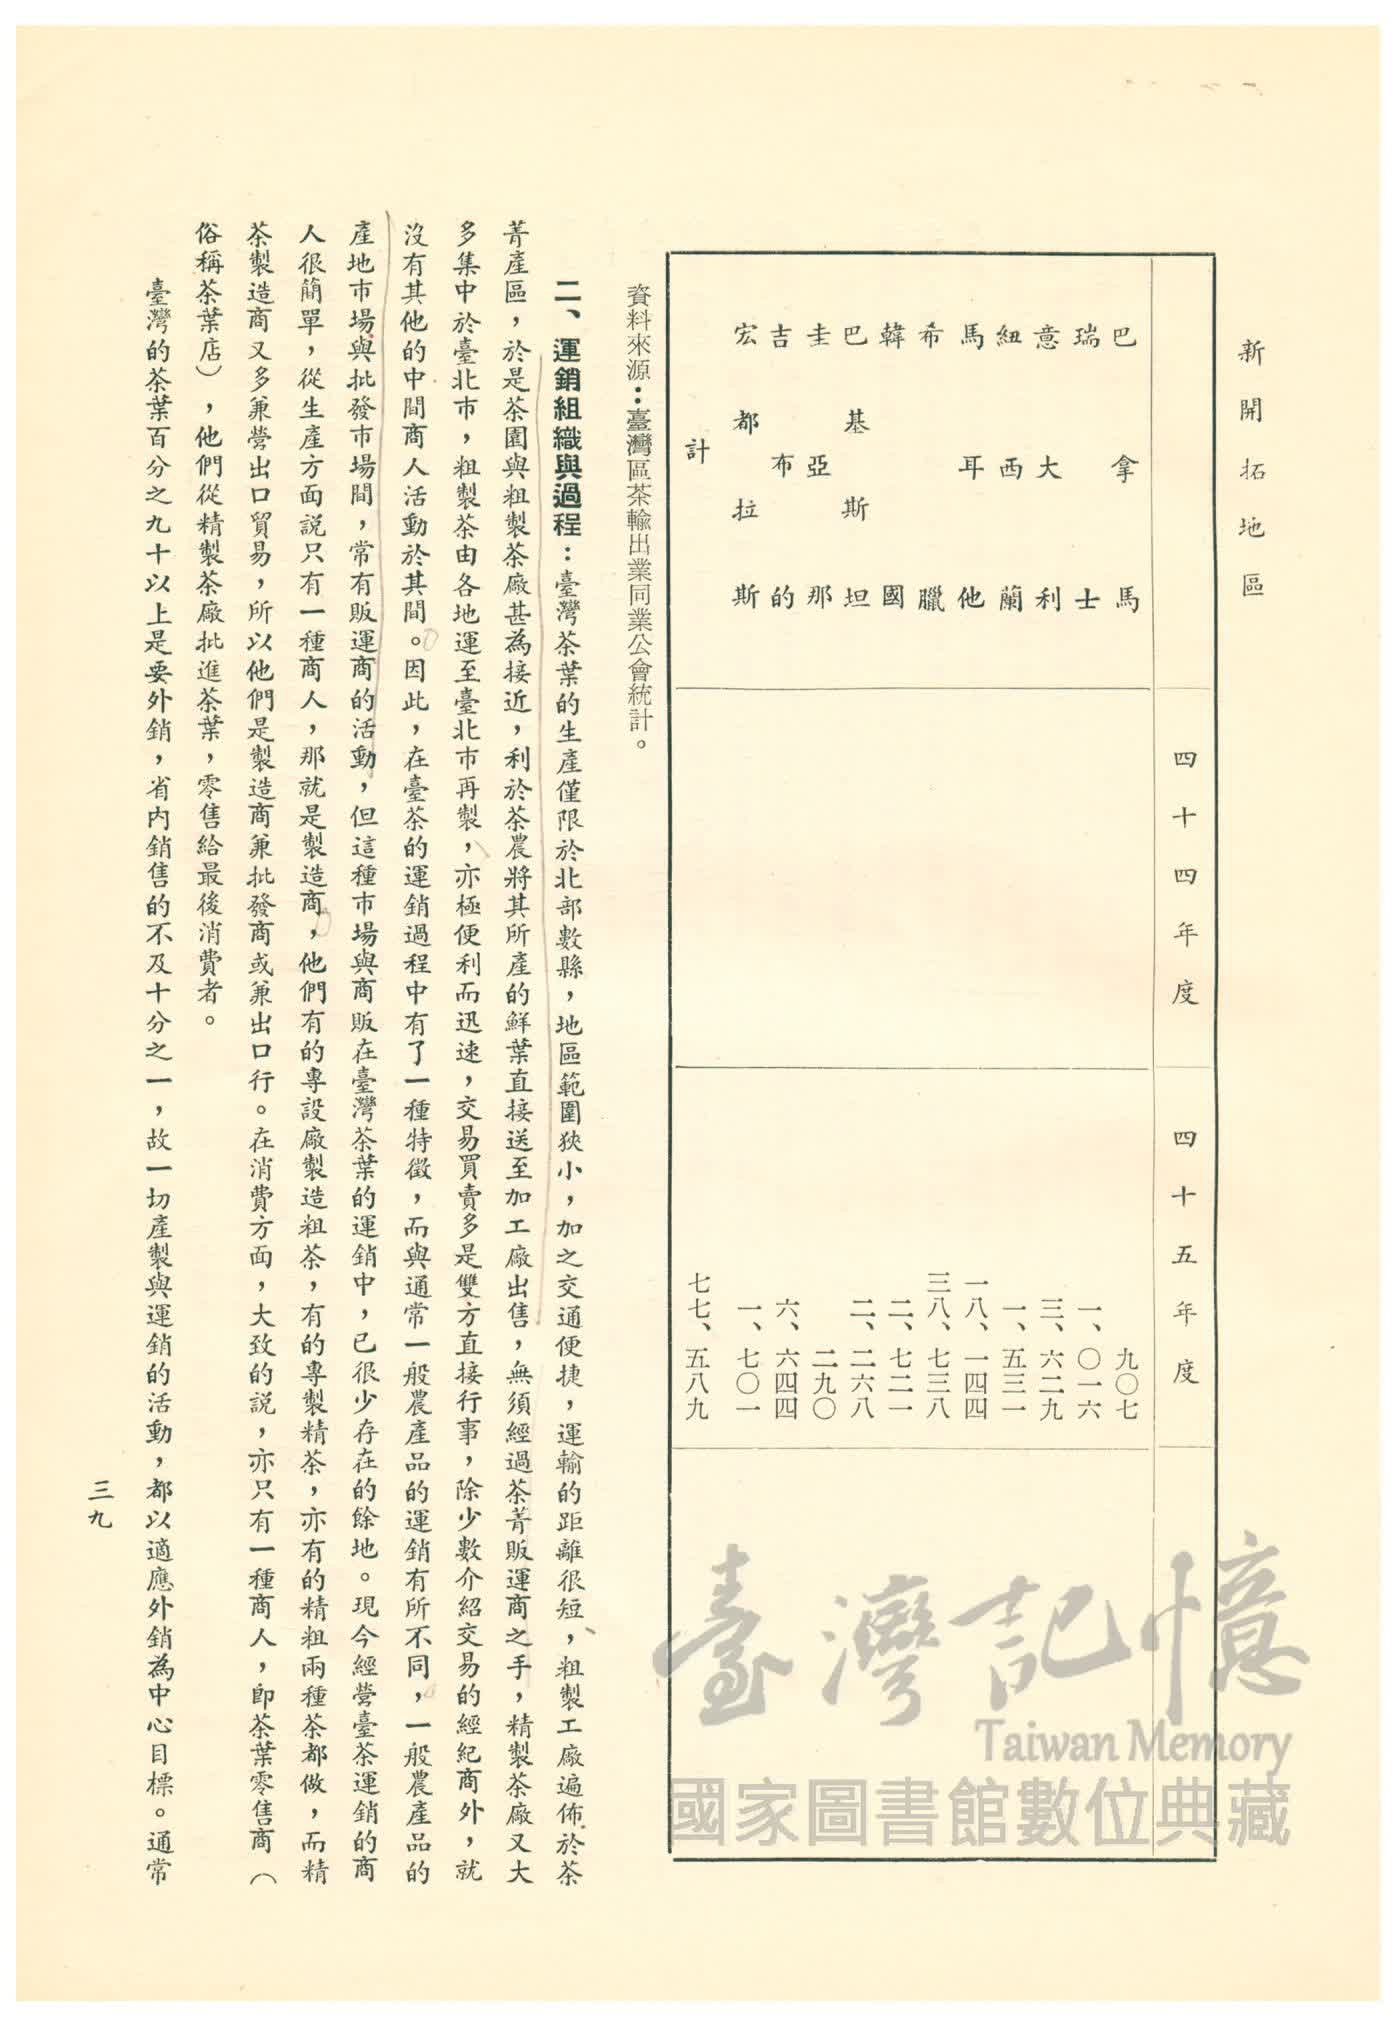 新開拓地區
四十四年度 四十五年度
巴拿馬 九〇七
瑞士 一、〇一六
意大利 三、六二九
紐西蘭 一、五三一
馬耳他 一八、一四四
希臘 三八、七三八
韓國 二、七二一
巴基斯坦 二、二六八
圭亞那 二九〇
吉布的 六、六四四
宏都拉斯 一、七〇一
計 七七、五八九
資料來源：臺灣區茶輸出業同業公會統計。
二、運銷組織與過程：臺灣茶葉的生產僅限於北部數縣，地區範圍狹小，加之交通便捷，運輸的距離很短、粗製工廠遍佈於茶
菁產區，於是茶園與粗製茶廠甚為接近，利於茶農將其所產的鮮葉直接送至加工廠出售，無須經過茶菁販運商之手，精製茶廠又大
多集中於臺北市，粗製茶由各地運至臺北市再製，亦極便利而迅速，交易買賣多是雙方直接行事，除少數介紹交易的經紀商外，就
沒有其他的中間商人活動於其間。因此，在臺茶的運銷過程中有了一種特徵，而與通常一般農產品的運銷有所不同，一般農產品的
產地市場與批發市場間，常有販運商的活動，但這種市場與商販在臺灣茶葉的運銷中，已很少存在的餘地。現今經營臺茶運銷的商
人很簡單，從生產方面說只有一種商人，那就是製造商，他們有的專設廠製造粗茶，有的專製精茶，亦有的精粗兩種茶都做，而精
茶製造商又多兼營出口貿易，所以他們是製造商兼批發商或兼出口行。在消費方面，大致的說，亦只有一種商人，即茶葉零售商（
俗稱茶葉店），他們從精製茶廠批進茶葉，零售給最後消費者。
臺灣的茶葉百分之九十以上是要外銷，省內銷售的不及十分之一，故一切產製與運銷的活動，都以適應外銷為中心目標。通常
三九
臺灣記憶
Taiwan Memory
國家圖書館數位典藏